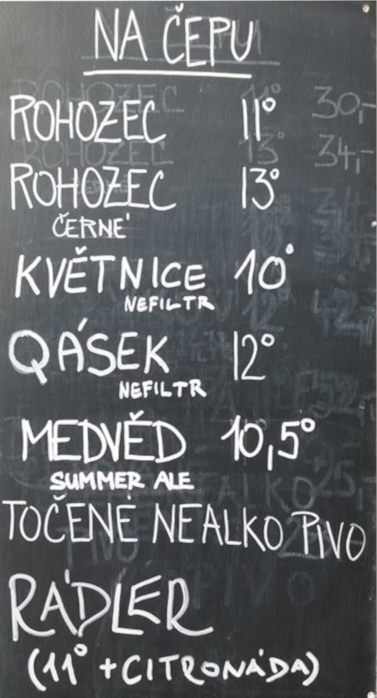 NA ČEPU
ROHOZEC 11°
ROHOZEC 13°
ČERNÉ
KVĚTNICE 10°
NEFILTR
QÁSEK 12°
NEFILTR
MEDVĚD 10,5°
SUMMER ALE
TOČENÉ NEALKO PIVO
RÁDLER
(11° + CITRONÁDA)